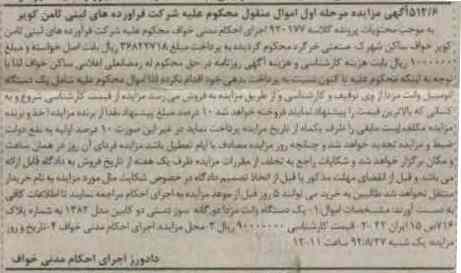 ۵۱۲/۶آگهی مزایده مرحله اول اموال منقول محکوم علیه شرکت فراورده های لبنی ثامن کویر
به موجب محتویات پرونده کلاسه ۹۲۰۱۷۷ اجرای احکام مدنی خواف محکوم علیه شرکت فرآورده های لبنی ثامن
کویر خواف ساکن شهرک صنعتی خرگرد محکوم گردیده به پرداخت مبلغ ۳۶۸۲۲۷۱۸ ریال بابت اصل خواسته و مبلغ
۱۰۰۰۰۰۰ ریال بابت هزینه کارشناسی و هزینه آگهی روزنامه در حق محکوم له رمضانعلی اعلامی ساکن خواف لذا با
توجه به اینکه محکوم علیه تا کنون نسبت به پرداخت بدهی خود اقدام نکرده لذا اموال محکوم علیه شامل یک دستگاه
اتومبیل وانت مزدا از وی توقیف و کارشناسی و از طریق مزایده به فروش می رسد مزایده از قیمت کارشناسی شروع و به
کسانی که بالاترین قیمت را پیشنهاد نمایند فروخته خواهد شد ۱۰ درصد مبلغ پیشنهاد نقدا از برنده مزایده اخذ و برنده
مزایده مکلف است مابقی را ظرف یکماه از تاریخ مزایده پرداخت نماید در غیر این صورت ۱۰ درصد اولیه به نفع دولت
ضبط و مزایده تجدید خواهد شد و چنانچه روز مزایده مصادف با ایام تعطیل باشد مزایده فردای آن روز در همان ساعت
و مکان برگزار خواهد شد و شکایات راجع به تخلف از مقررات مزایده ظرف یک هفته از تاریخ فروش به دادگاه قابل ارائه
می باشد و قبل از انقضای مهلت مذکور یا قبل از اتخاذ تصمیم دادگاه در خصوص شکایت مال مورد مزایده به نام خریدار
منتقل نخواهد شد طالبین به خرید می توانند ۵ روز قبل از موعد مزایده به اجرای احکام مراجعه نمایند تا اطلاعات کافی
به دست آورند: مشخصات اموال ۱- یک دستگاه وانت مزدا دوگانه سوز تستی دو کابین مدل ۱۳۸۲ به شماره پلاک
۷۱۶ص۱۵ ایران ۴۲ ۲- قیمت کارشناسی ۹۰۰۰۰۰۰۰ ریال ۳- محل مزایده: اجرای احکام مدنی خواف ۴- تاریخ و روز
مزایده: یک شنبه ۹۲/۸/۲۷ ساعت ۱۱-۱۲
دادورز اجرای احکام مدنی خواف